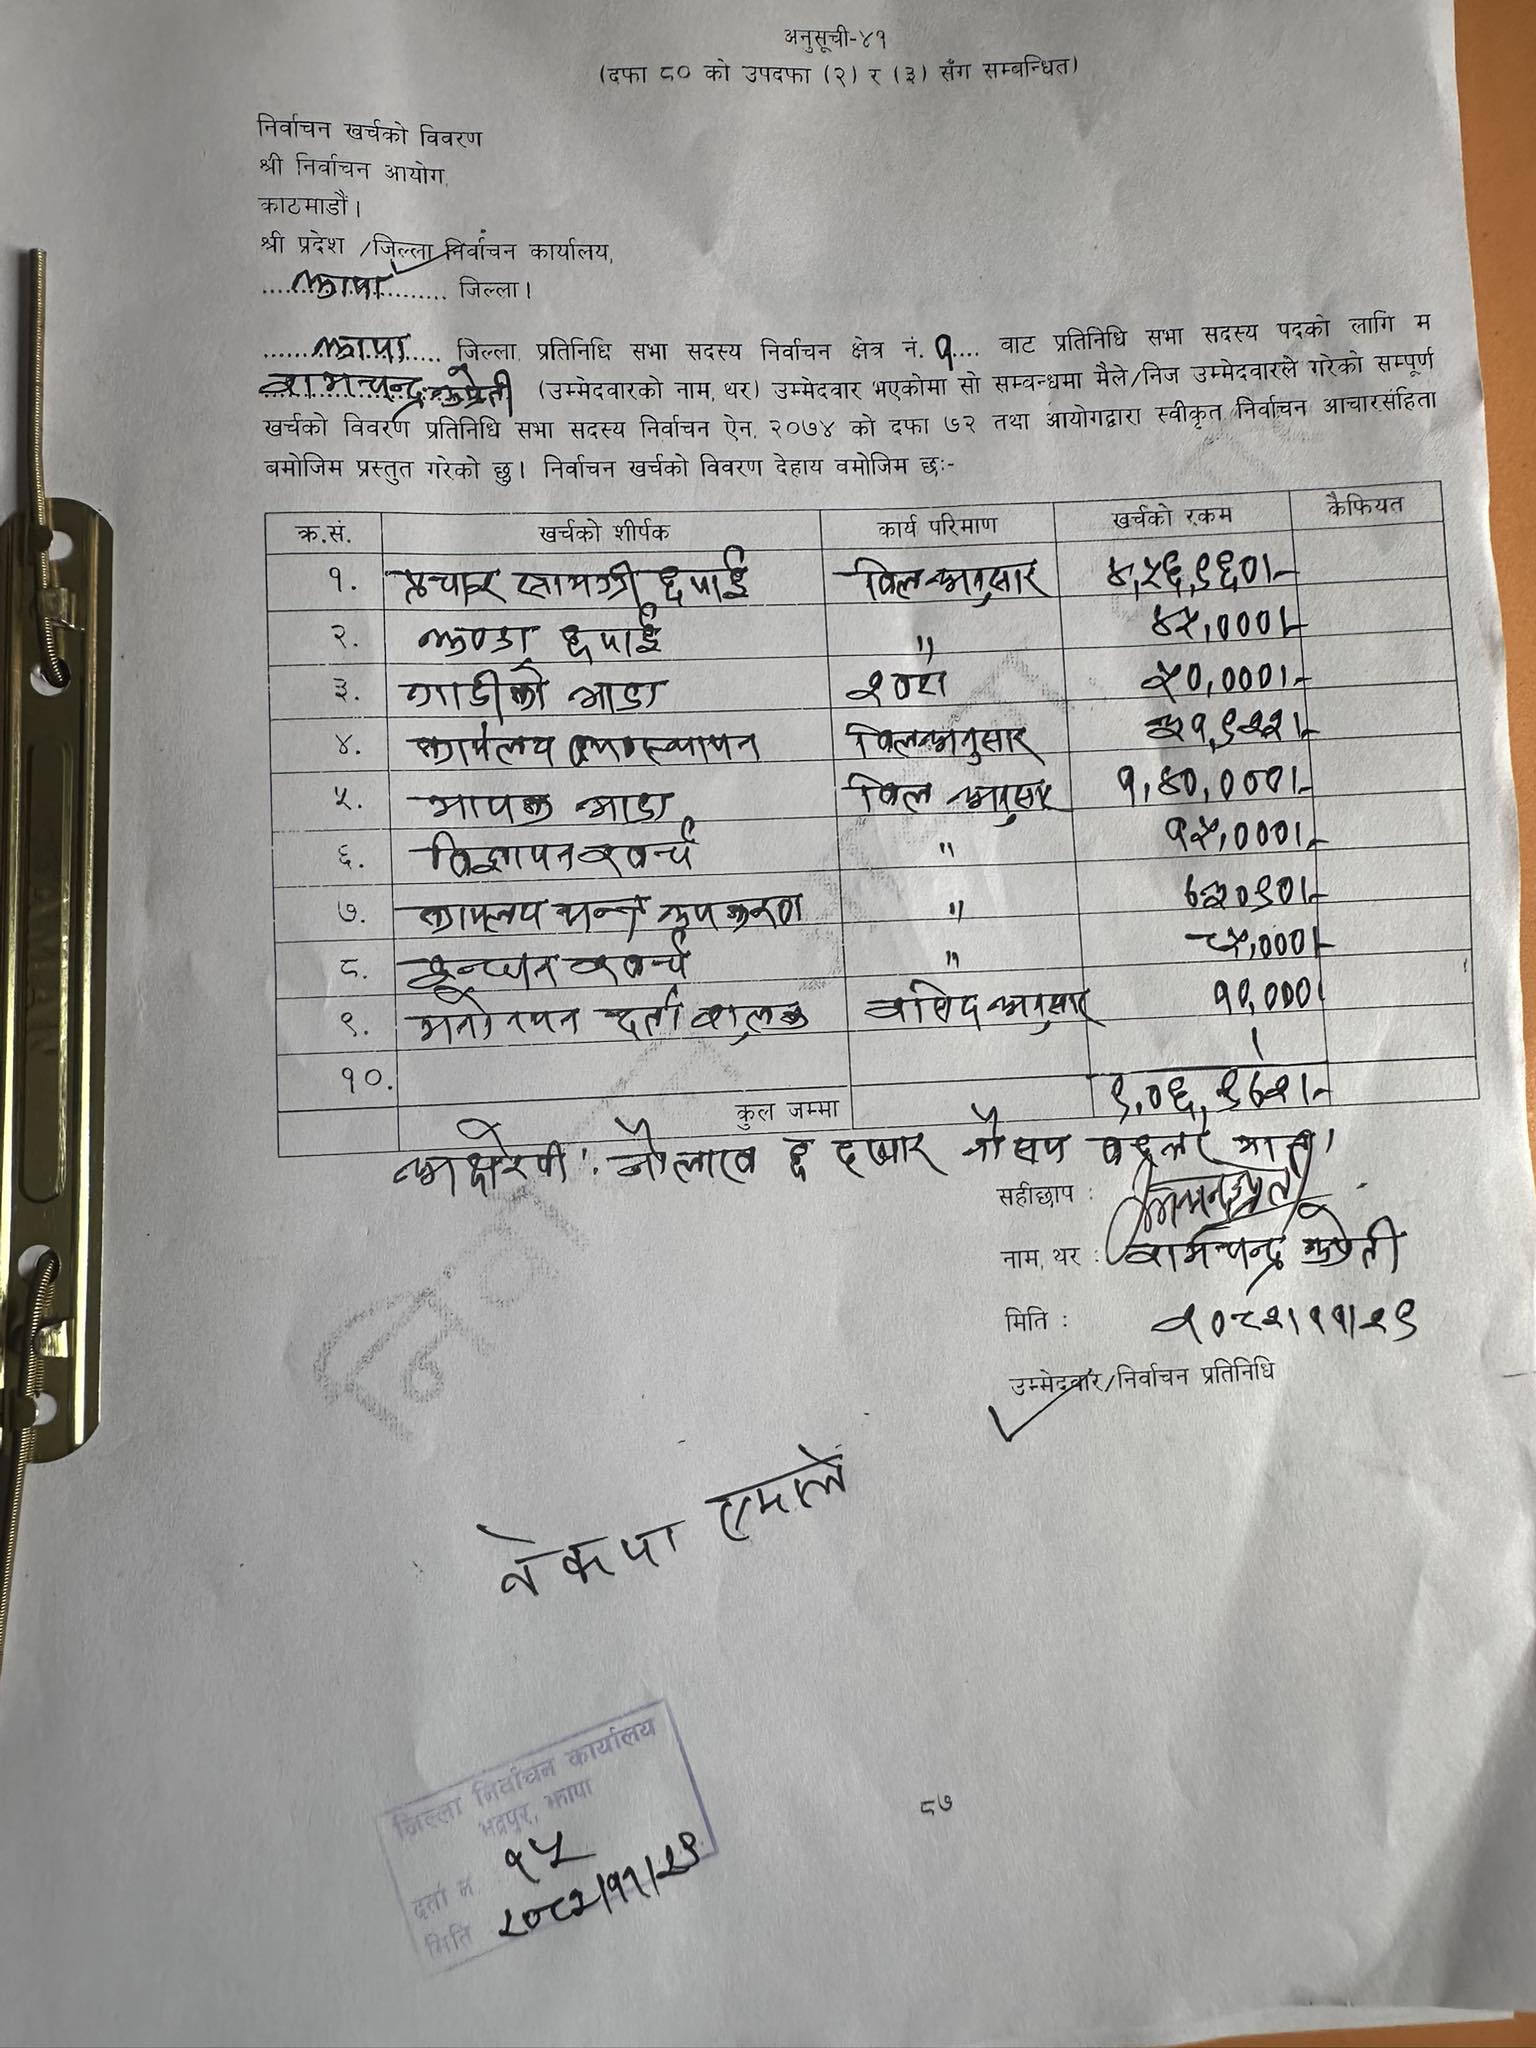 अनुसूची-४१
(दफा ८० को उपदफा (२) र (३) सँग सम्बन्धित)
निर्वाचन खर्चको विवरण
श्री निर्वाचन आयोग,
काठमाडौं।
श्री प्रदेश /जिल्ला निर्वाचन कार्यालय,
झापा जिल्ला।
झापा जिल्ला, प्रतिनिधि सभा सदस्य निर्वाचन क्षेत्र नं. १ वाट प्रतिनिधि सभा सदस्य पदको लागि म
रामचन्द्र उप्रेती (उम्मेदवारको नाम, थर) उम्मेदवार भएकोमा सो सम्वन्धमा मैले/निज उम्मेदवारले गरेको सम्पूर्ण
खर्चको विवरण प्रतिनिधि सभा सदस्य निर्वाचन ऐन, २०७४ को दफा ७२ तथा आयोगद्वारा स्वीकृत निर्वाचन आचारसंहिता
बमोजिम प्रस्तुत गरेको छु। निर्वाचन खर्चको विवरण देहाय वमोजिम छः-
क्र.सं. खर्चको शीर्षक कार्य परिमाण खर्चको रकम कैफियत
१. प्रचार सामग्री छपाई विल अनुसार ४,५६,९६०।-
२. झण्डा छपाई " ४५,०००।-
३. गाडीको भाडा २ वटा ५०,०००।-
४. कार्यलय व्यवस्थापन विल अनुसार ३१,९२२।-
५. मापक भाडा विल अनुसार १,४०,०००।-
६. विज्ञापन खर्च " १५,०००।-
७. कार्यलय यन्त्र उपकरण " ७३०९०।-
८. इन्धन खर्च " ८५,०००।-
९. मनोनयन दर्ता शुल्क रसिद अनुसार १०,०००।
१०.
कुल जम्मा ९,०६,९७२।-
अक्षरेपी : नौ लाख छ हजार नौ सय बहत्तर मात्र।
सहीछाप :
नाम, थर : रामचन्द्र उप्रेती
मिति : २०८२।११।२९
उम्मेदवार/निर्वाचन प्रतिनिधि
नेकपा एमाले
जिल्ला निर्वाचन कार्यालय
भद्रपुर, झापा
दर्ता नं. १५
मिति २०८२।११।२९
८७